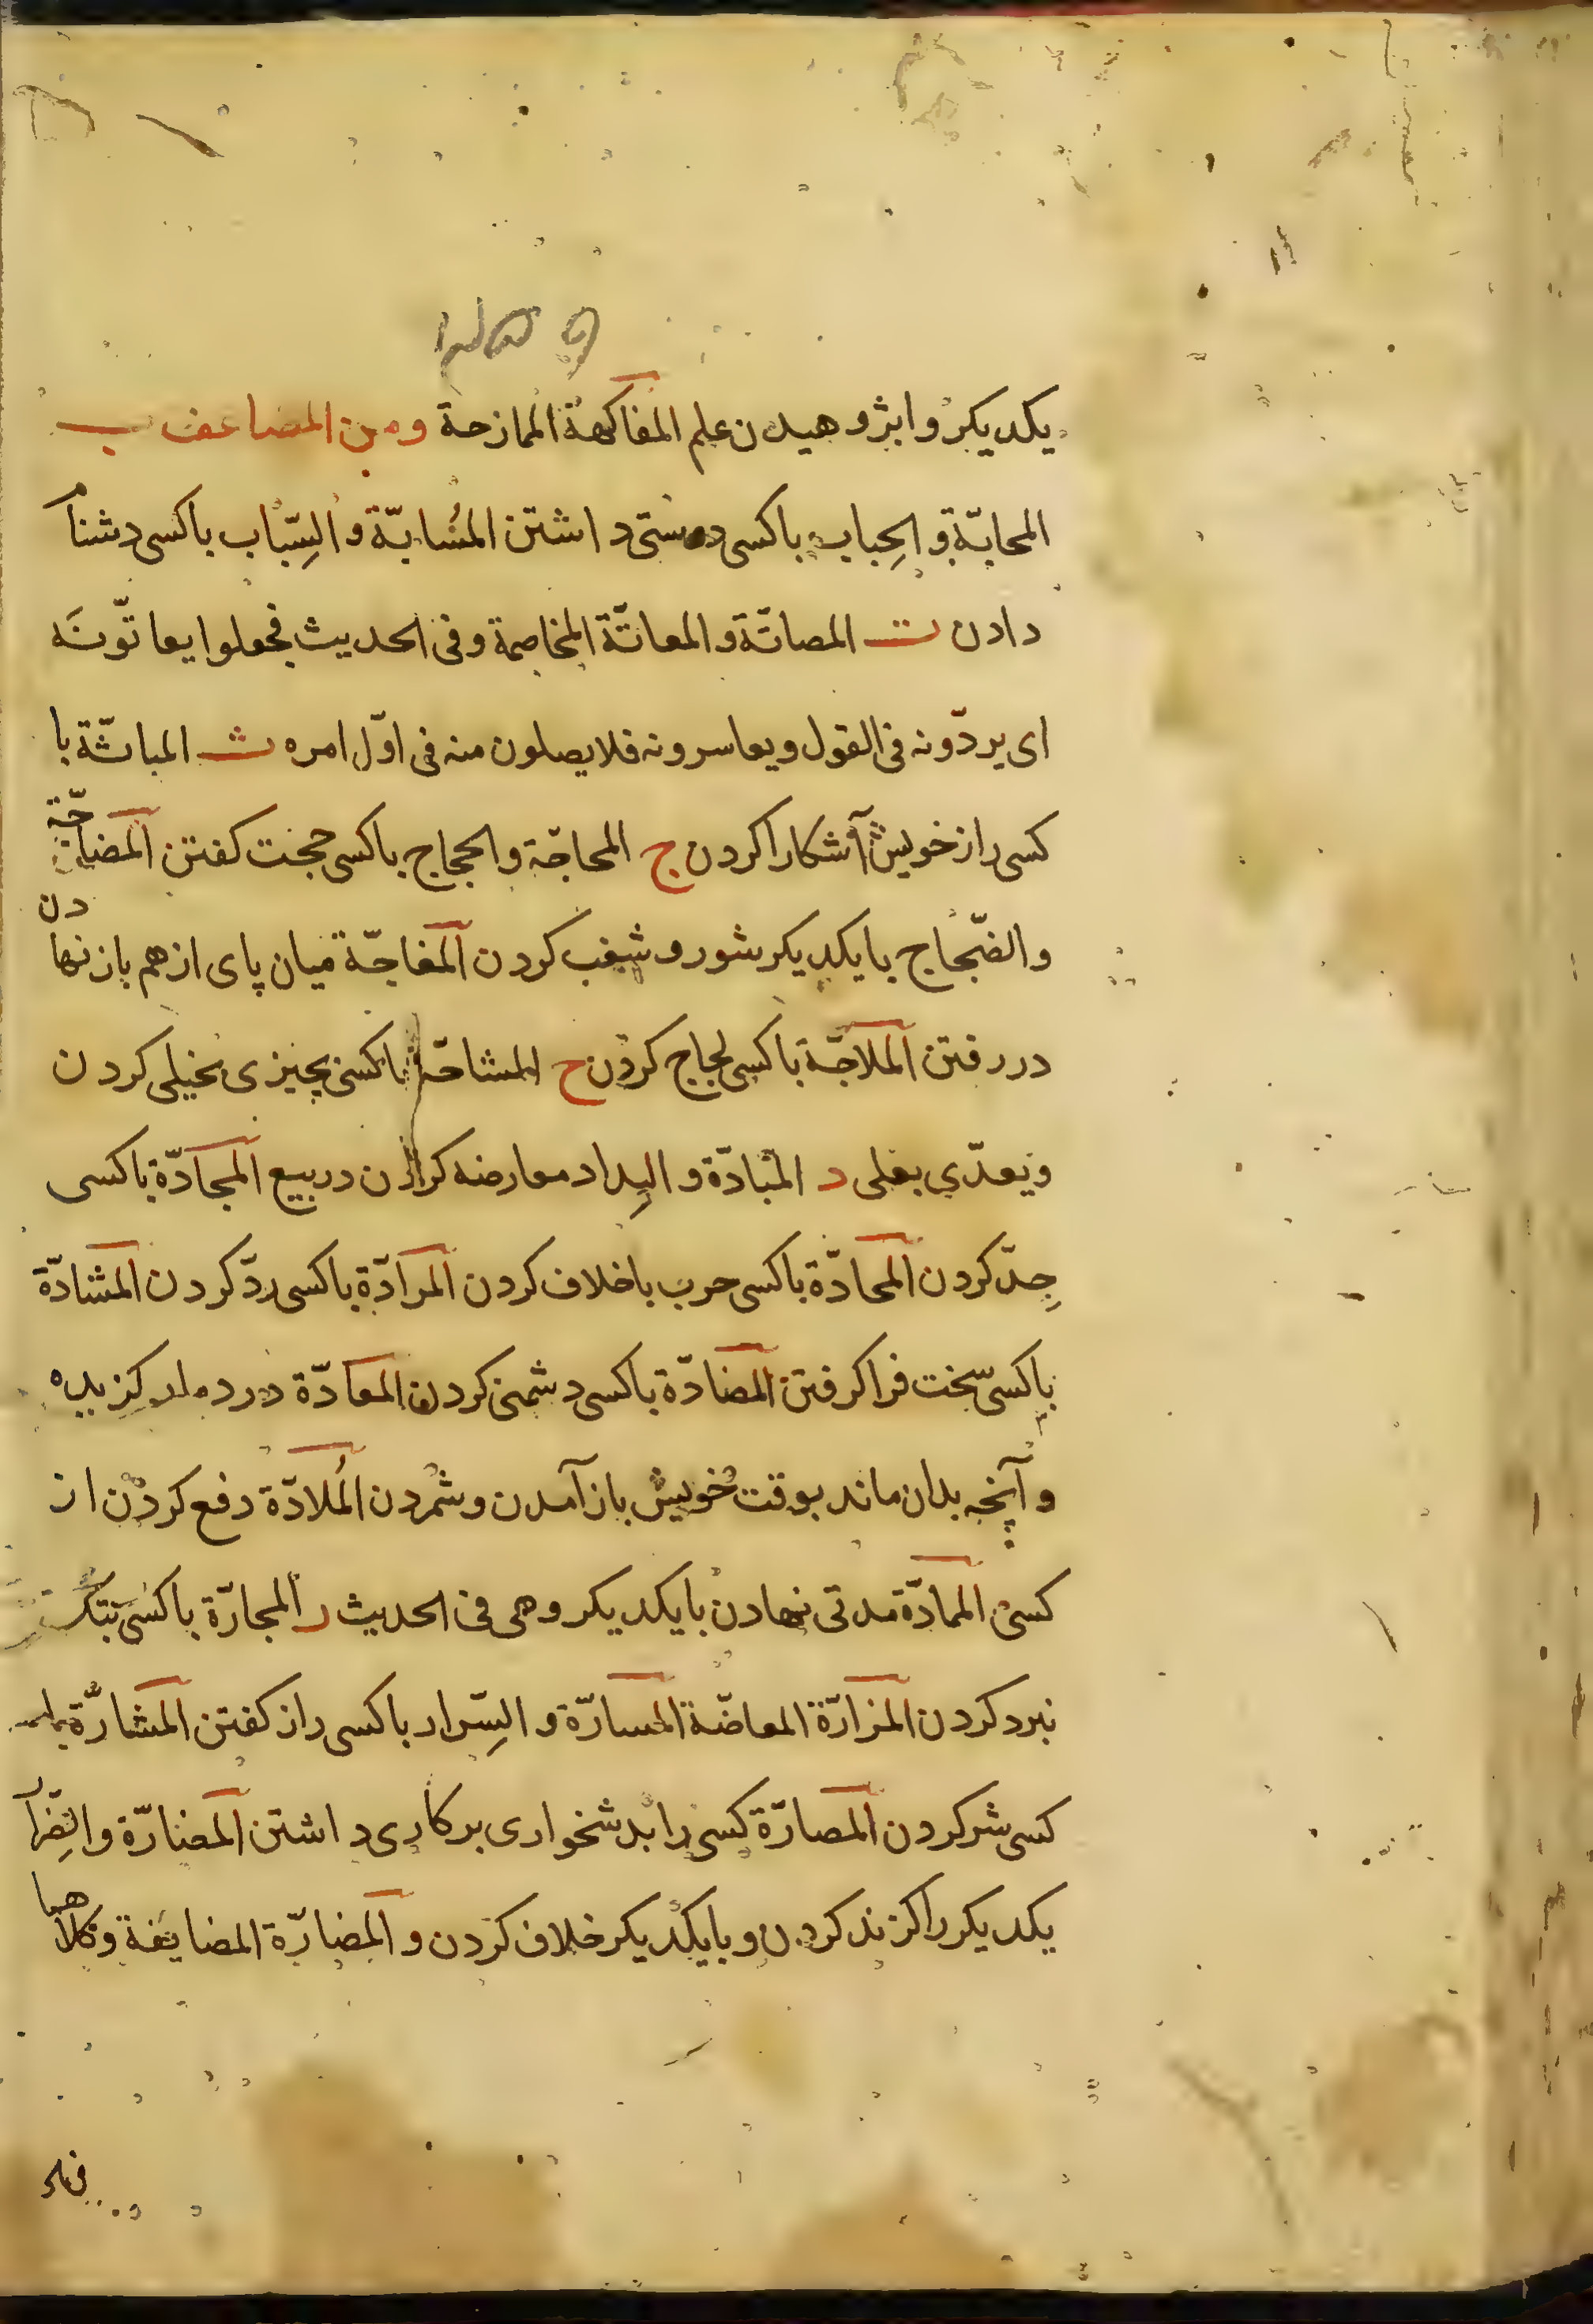 یکدیکر وابژوهیدن علم المفاکهة الممازحة ومن المضاعف ب
المحابّة والحِباب باکسی دوستی داشتن المسُابّة والسِّباب باکسی دشنام
دادن ت المصاتّة والمعاتّة المخاصمة وفی الحدیث فجعلوا یعاتّونَه
ای یردّونه فی القول ویعاسرونه فلا یصلون منه فی اوّل امره ث المباثّة با
کسی راز خویش آشکارا کردن ج المحاجّة والحجاج باکسی حجت کفتن المضاجّة
والضّجاج بایکدیکر شور و شغب کردن المفاجّة میان پای از هم باز نهادن
در رفتن الملاجّة باکسی لجاج کردن ح المشاحّة باکسی بچیزی بخیلی کردن
ویعدّی بعلی د المبادّة والبِداد معارضه کردن در بیع المجادّة باکسی
جِدّ کردن المحادّة باکسی حرب باخلاف کردن المرادّة باکسی ردّ کردن المشادّة
باکسی سخت فرا کرفتن المضادّة باکسی دشمنی کردن المعادّة درد مار کزیده
وآنچه بدان ماند بوقت خویش باز آمدن وشمردن المُلادّة دفع کردن از
کسی المادّة مدتی نهادن بایکدیکر وهی فی الحدیث ر المجارّة باکسی
نبرد کردن المزارّة المعاضّة المسارّة والسِّرار باکسی راز کفتن المشارّة با
کسی شر کردن المصارّة کسی را بدشخواری بر کاری داشتن المضارّة والضِّرار
یکدیکر را کزند کردن وبایکدیکر خلاف کردن والمضارّة المضایقة وکلاهما